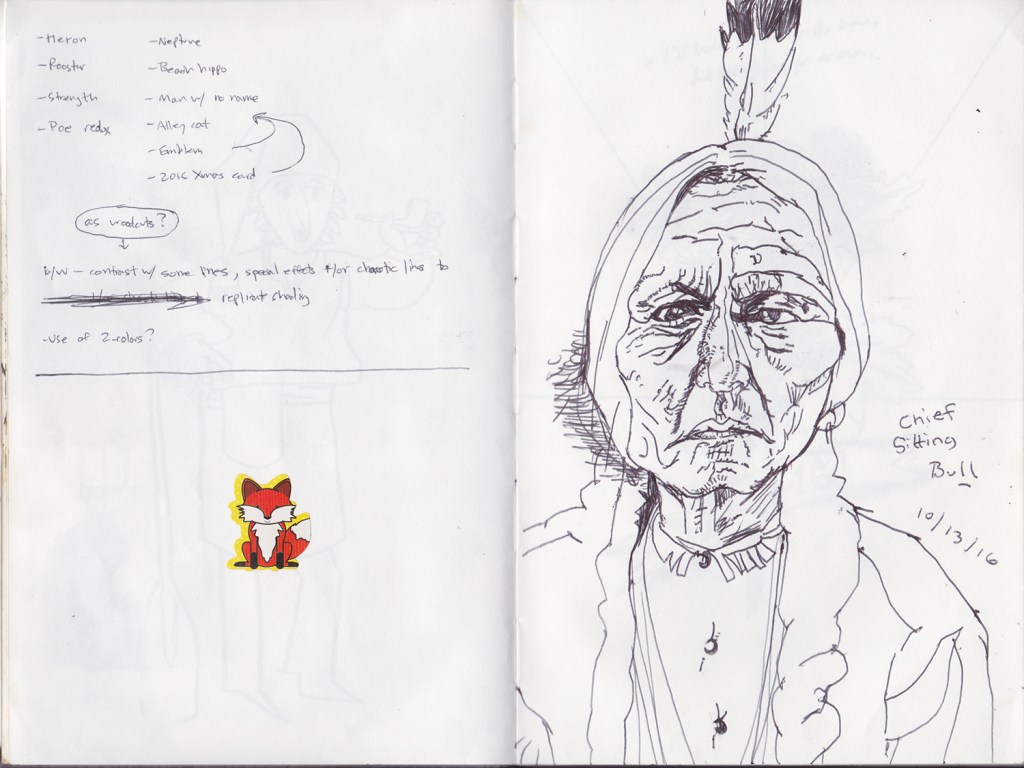 -Heron
-Rooster
-Strength
-Poe redux
-Neptune
-Beach hippo
-Man w/ no name
-Alley cat
-Emblem
-2016 Xmas card
as woodcuts?
b/w - contrast w/ some lines, special effects +/or chaotic lines to
replicat shading
-use of 2-colors?
Chief
Sitting
Bull
10/13/16